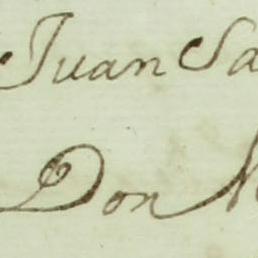 Juan Sa
Don